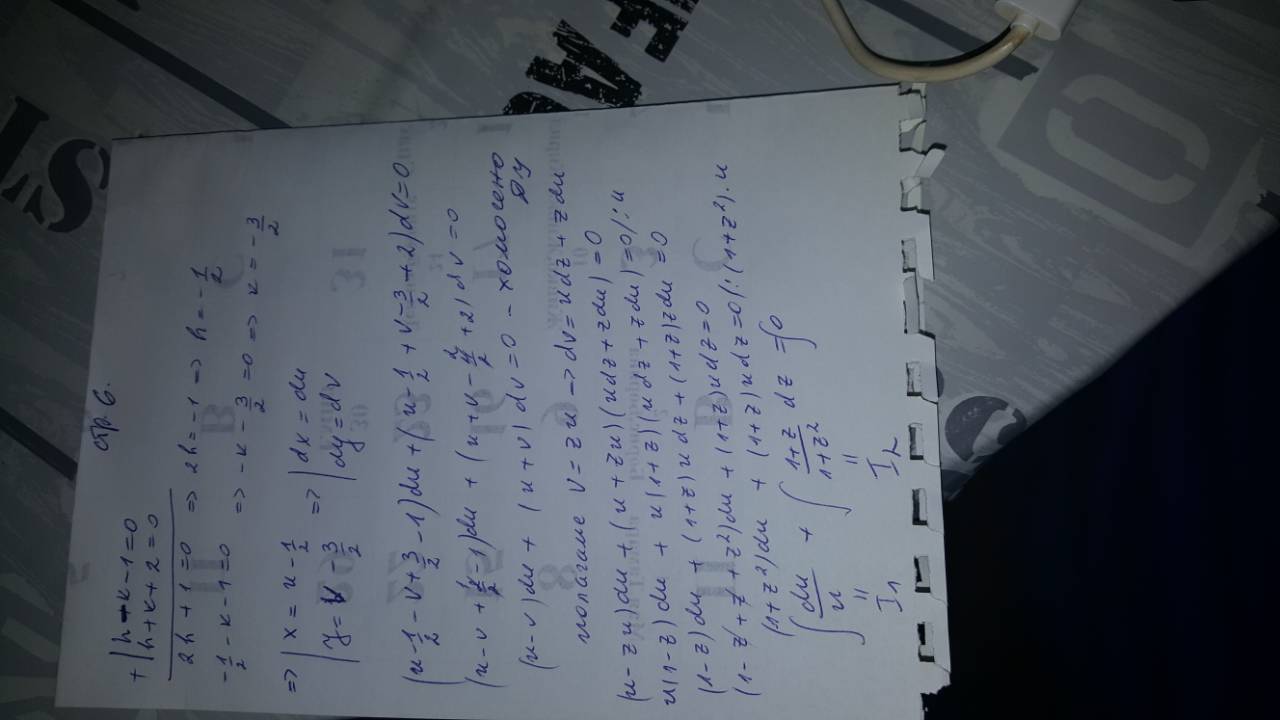 стр. 6.
+ | h - к - 1 = 0
| h + к + 2 = 0
2h + 1 = 0 => 2h = -1 => h = -1/2
-1/2 - к - 1 = 0 => -к - 3/2 = 0 => к = -3/2
=> | x = u - 1/2 => | dx = du
| y = v - 3/2 | dy = dv
(u - 1/2 - v + 3/2 - 1) du + (u - 1/2 + v - 3/2 + 2) dv = 0
(u - v + 2/2 - 1) du + (u + v - 4/2 + 2) dv = 0
(u - v) du + (u + v) dv = 0 - хомогено
ДУ
полагаме v = zu -> dv = udz + zdu
(u - zu) du + (u + zu)(udz + zdu) = 0
u(1-z) du + u(1+z)(udz + zdu) = 0 /: u
(1-z) du + (1+z) udz + (1+z) zdu = 0
(1 - z + z + z²) du + (1+z) udz = 0
(1+z²) du + (1+z) udz = 0 /: (1+z²). u
∫ du/u + ∫ (1+z)/(1+z²) dz = ∫ 0
= =
I₁ I₂